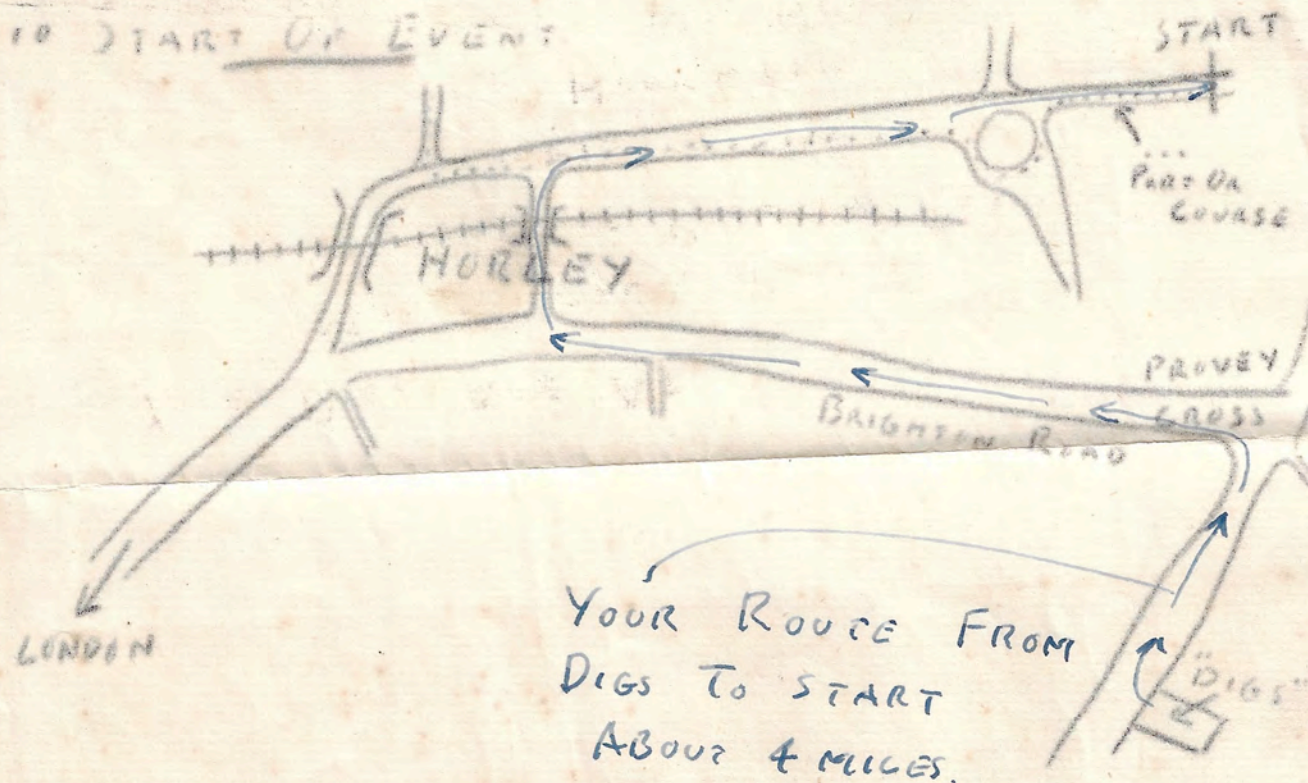 START OF EVENT
START
...
PART OF
COURSE
HORLEY
PROVEY
CROSS
BRIGHTON ROAD
LONDON
YOUR ROUTE FROM
DIGS TO START
ABOUT 4 MILES.
"DIGS"